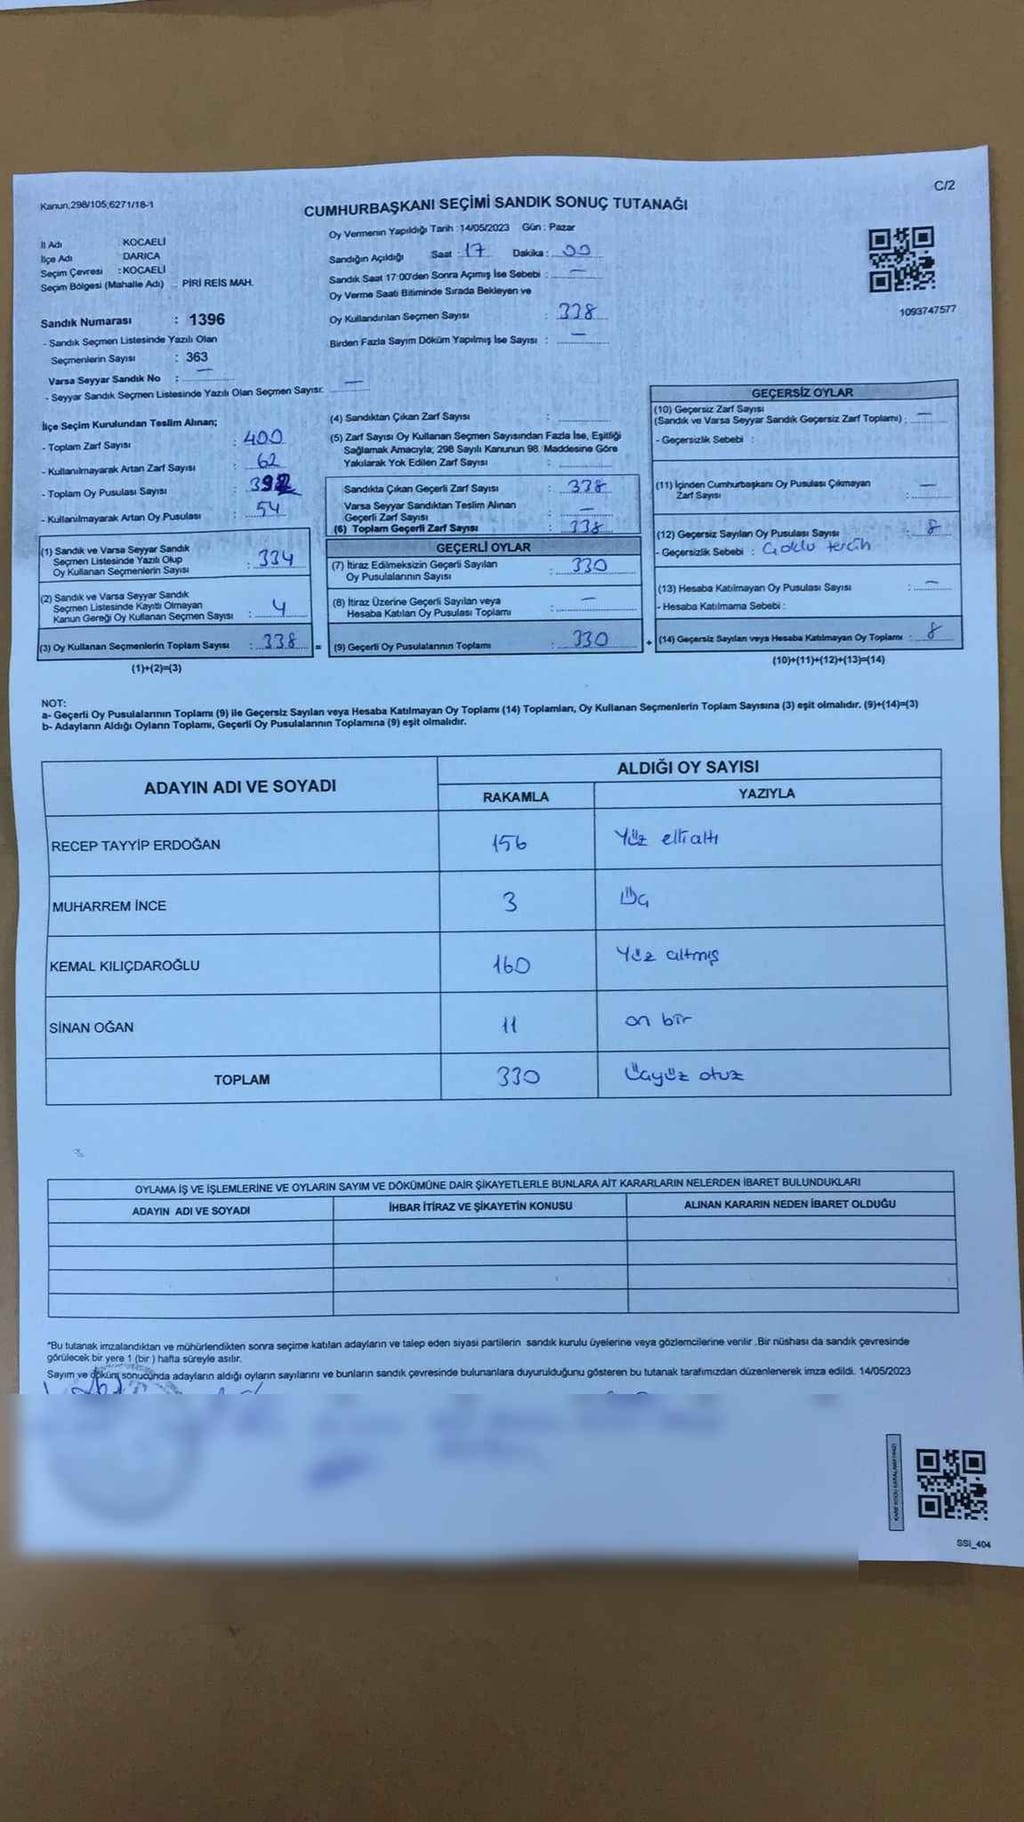 C/2
Kanun.298/105,6271/18-1
CUMHURBAŞKANI SEÇİMİ SANDIK SONUÇ TUTANAĞI
İl Adı KOCAELİ
İlçe Adı DARICA
Seçim Çevresi : KOCAELİ
Seçim Bölgesi (Mahalle Adı) : PİRİ REİS MAH.
Sandık Numarası : 1396
- Sandık Seçmen Listesinde Yazılı Olan
Seçmenlerin Sayısı : 363
Varsa Seyyar Sandık No : —
- Seyyar Sandık Seçmen Listesinde Yazılı Olan Seçmen Sayısı: —
Oy Vermenin Yapıldığı Tarih : 14/05/2023 Gün : Pazar
Sandığın Açıldığı Saat : 17 Dakika : 00
Sandık Saat 17:00'den Sonra Açımış İse Sebebi : —
Oy Verme Saati Bitiminde Sırada Bekleyen ve
Oy Kullandırılan Seçmen Sayısı : 338
Birden Fazla Sayım Döküm Yapılmış İse Sayısı : —
1093747577
İlçe Seçim Kurulundan Teslim Alınan;
- Toplam Zarf Sayısı : 400
- Kullanılmayarak Artan Zarf Sayısı : 62
- Toplam Oy Pusulası Sayısı :
- Kullanılmayarak Artan Oy Pusulası : 54
(1) Sandık ve Varsa Seyyar Sandık
Seçmen Listesinde Yazılı Olup
Oy Kullanan Seçmenlerin Sayısı : 334
(2) Sandık ve Varsa Seyyar Sandık
Seçmen Listesinde Kayıtlı Olmayan
Kanun Gereği Oy Kullanan Seçmen Sayısı : 4
(3) Oy Kullanan Seçmenlerin Toplam Sayısı : 338 =
(1)+(2)=(3)
(4) Sandıktan Çıkan Zarf Sayısı :
(5) Zarf Sayısı Oy Kullanan Seçmen Sayısından Fazla İse, Eşitliği
Sağlamak Amacıyla; 298 Sayılı Kanunun 98. Maddesine Göre
Yakılarak Yok Edilen Zarf Sayısı :
Sandıkta Çıkan Geçerli Zarf Sayısı : 338
Varsa Seyyar Sandıktan Teslim Alınan
Geçerli Zarf Sayısı : —
(6) Toplam Geçerli Zarf Sayısı : 338
GEÇERLİ OYLAR
(7) İtiraz Edilmeksizin Geçerli Sayılan
Oy Pusulalarının Sayısı : 330
(8) İtiraz Üzerine Geçerli Sayılan veya
Hesaba Katılan Oy Pusulası Toplamı : —
(9) Geçerli Oy Pusulalarının Toplamı : 330 +
GEÇERSİZ OYLAR
(10) Geçersiz Zarf Sayısı
(Sandık ve Varsa Seyyar Sandık Geçersiz Zarf Toplamı) : —
- Geçersizlik Sebebi :
(11) İçinden Cumhurbaşkanı Oy Pusulası Çıkmayan
Zarf Sayısı : —
(12) Geçersiz Sayılan Oy Pusulası Sayısı : 8
- Geçersizlik Sebebi : Çoklu tercih
(13) Hesaba Katılmayan Oy Pusulası Sayısı : —
- Hesaba Katılmama Sebebi :
(14) Geçersiz Sayılan veya Hesaba Katılmayan Oy Toplamı : 8
(10)+(11)+(12)+(13)=(14)
NOT:
a- Geçerli Oy Pusulalarının Toplamı (9) ile Geçersiz Sayılan veya Hesaba Katılmayan Oy Toplamı (14) Toplamları, Oy Kullanan Seçmenlerin Toplam Sayısına (3) eşit olmalıdır. (9)+(14)=(3)
b- Adayların Aldığı Oyların Toplamı, Geçerli Oy Pusulalarının Toplamına (9) eşit olmalıdır.
ADAYIN ADI VE SOYADI ALDIĞI OY SAYISI
RAKAMLA YAZIYLA
RECEP TAYYİP ERDOĞAN 156 Yüz elli altı
MUHARREM İNCE 3 Üç
KEMAL KILIÇDAROĞLU 160 Yüz altmış
SİNAN OĞAN 11 on bir
TOPLAM 330 Üçyüz otuz
OYLAMA İŞ VE İŞLEMLERİNE VE OYLARIN SAYIM VE DÖKÜMÜNE DAİR ŞİKAYETLERLE BUNLARA AİT KARARLARIN NELERDEN İBARET BULUNDUKLARI
ADAYIN ADI VE SOYADI İHBAR İTİRAZ VE ŞİKAYETİN KONUSU ALINAN KARARIN NEDEN İBARET OLDUĞU
*Bu tutanak imzalandıktan ve mühürlendikten sonra seçime katılan adayların ve talep eden siyasi partilerin sandık kurulu üyelerine veya gözlemcilerine verilir .Bir nüshası da sandık çevresinde
görülecek bir yere 1 (bir ) hafta süreyle asılır.
Sayım ve döküm sonucunda adayların aldığı oyların sayılarını ve bunların sandık çevresinde bulunanlara duyurulduğunu gösteren bu tutanak tarafımızdan düzenlenerek imza edildi. 14/05/2023
SSI_404